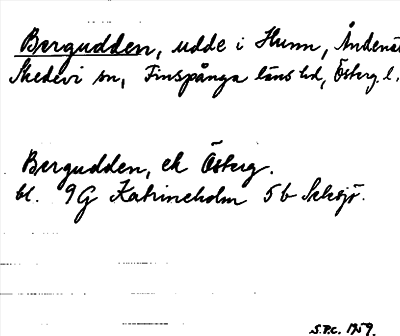 Bergudden, udde i Hunn, Ändenäs
Skedevi sn, Finspånga läns hd, Österg. l.
Bergudden, ek Österg.
bl. 9G Katrineholm 5b Seksjö.
S.P.C. 1959.